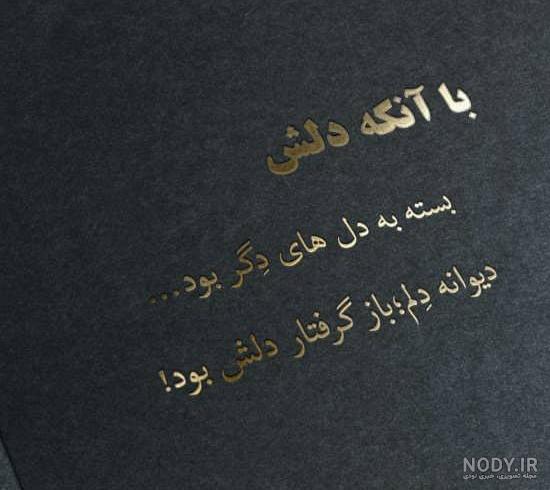 با آنکه دلش
بسته به دل های دِگر بود...
دیوانه دِلم؛باز گرفتار دلش بود!
NODY.IR
مجله تصویری، خبری نودی